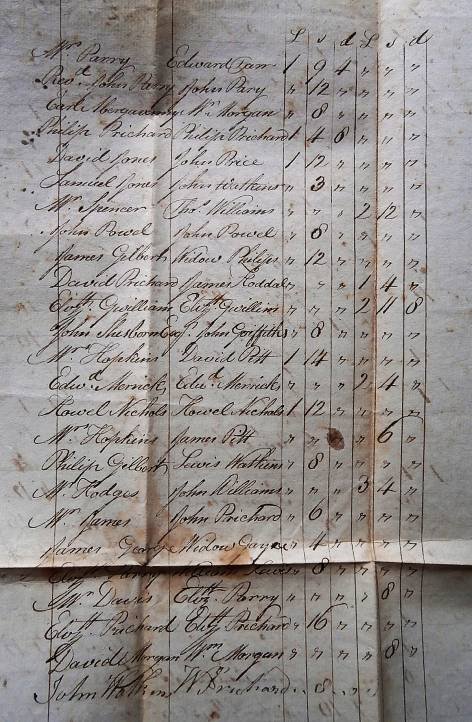 £ s d £ s d
Mr. Parry Edward Parr 1 9 4 " " "
Revd. John Parry John Pary " 12 " " " "
Earl Abergavenny Wm. Morgan " 8 " " " "
Philip Prichard Philip Prichard 1 4 8 " " "
David Jones John Price 1 12 " " " "
Samuel Jones John Watkins " 3 " " " "
Mr. Spencer Thos. Williams " " " 2 12 "
John Powel John Powel " 8 " " " "
James Gilbert Widow Philips " 12 " " " "
David Prichard James " " " 1 4 "
Elizth. Gwilliam Elizth. Gwillim " " " 2 11 8
John Esqr. John Griffiths " 8 " " " "
Mrs. Hopkins David Pitt 1 14 " " " "
Edwd. Merrick Edwd. Merrick " " " 2 4 "
Howel Nichols Howel Nichols 1 12 " " " "
Mrs. Hopkins James Pitt " " " " 6 "
Philip Gilbert Lewis Watkins " 8 " " " "
Mr. Hodges John Williams " " " 3 4 "
Mr. James John Prichard " 6 " " " "
James Widow " 4 " " " "
Elizth. Parry Lewis " 8 " " " "
Mr. Davis Elizth. Parry " " " " 8 "
Elizth. Prichard Elizth. Prichard " 16 " " " "
David Morgan Wm. Morgan " " " " 8 "
John W. Prichard " 8 " " " "